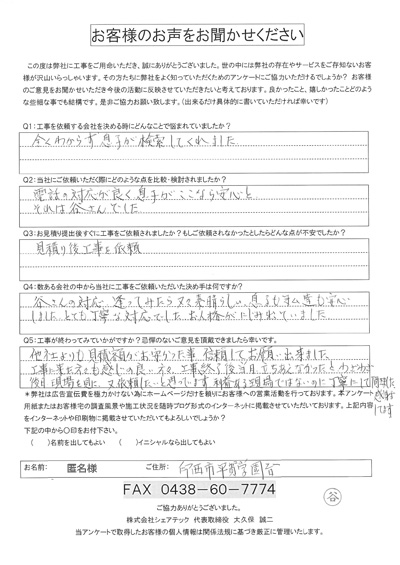 お客様のお声をお聞かせください
この度は弊社に工事をご用命いただき、誠にありがとうございました。世の中には弊社の存在やサービスをご存知ないお客
様が沢山いらっしゃいます。その方たちに弊社をよく知っていただくためのアンケートにご協力いただけるでしょうか? お客様
のご意見をお聞かせいただき今後の活動に反映させていただきたいと考えております。良かったこと、嬉しかったことどのよう
な些細な事でも結構です。是非ご協力お願い致します。(出来るだけ具体的に書いていただければ幸いです)
Q1:工事を依頼する会社を決める時にどんなことで悩まれていましたか?
全くわからず息子が検索してくれました
Q2:当社にご依頼いただく際にどのような点を比較・検討されましたか?
電話の対応が良く息子がここなら安心と
それは谷さんでした
Q3:お見積り提出後すぐに工事をご依頼されましたか?もしご依頼されなかったとしたらどんな点が不安でしたか?
見積り後工事を依頼
Q4:数ある会社の中から当社に工事をご依頼いただいた決め手は何ですか?
谷さんの対応 逢ってみたら又々素晴らしい。息子も安心
しました とても丁寧な対応でした お人格がにじみ出ていました
Q5:工事が終わってみていかがですか?忌憚のないご意見を頂戴できましたら幸いです。
他社よりも見積額がお安かった事 信頼してお願い出来ました
後日現場を見に 又依頼したいと思っています
*弊社は広告宣伝費を極力かけない為にホームページだけを頼りにお客様への営業活動を行っております。本アンケート
用紙またはお客様宅の調査風景や施工状況を随時ブログ形式のインターネットに掲載させていただいております。上記内容
をインターネットや印刷物に掲載させていただいてもよろしいでしょうか?
下記の中から〇印をお付下さい。
( )名前を出してもよい ( )イニシャルなら出してもよい
お名前: 匿名様 ご住所:
FAX 0438-60-7774
谷
ご協力ありがとうございました。
株式会社シェアテック 代表取締役 大久保 誠二
当アンケートで取得したお客様の個人情報は関係法規に基づき厳正に管理いたします。